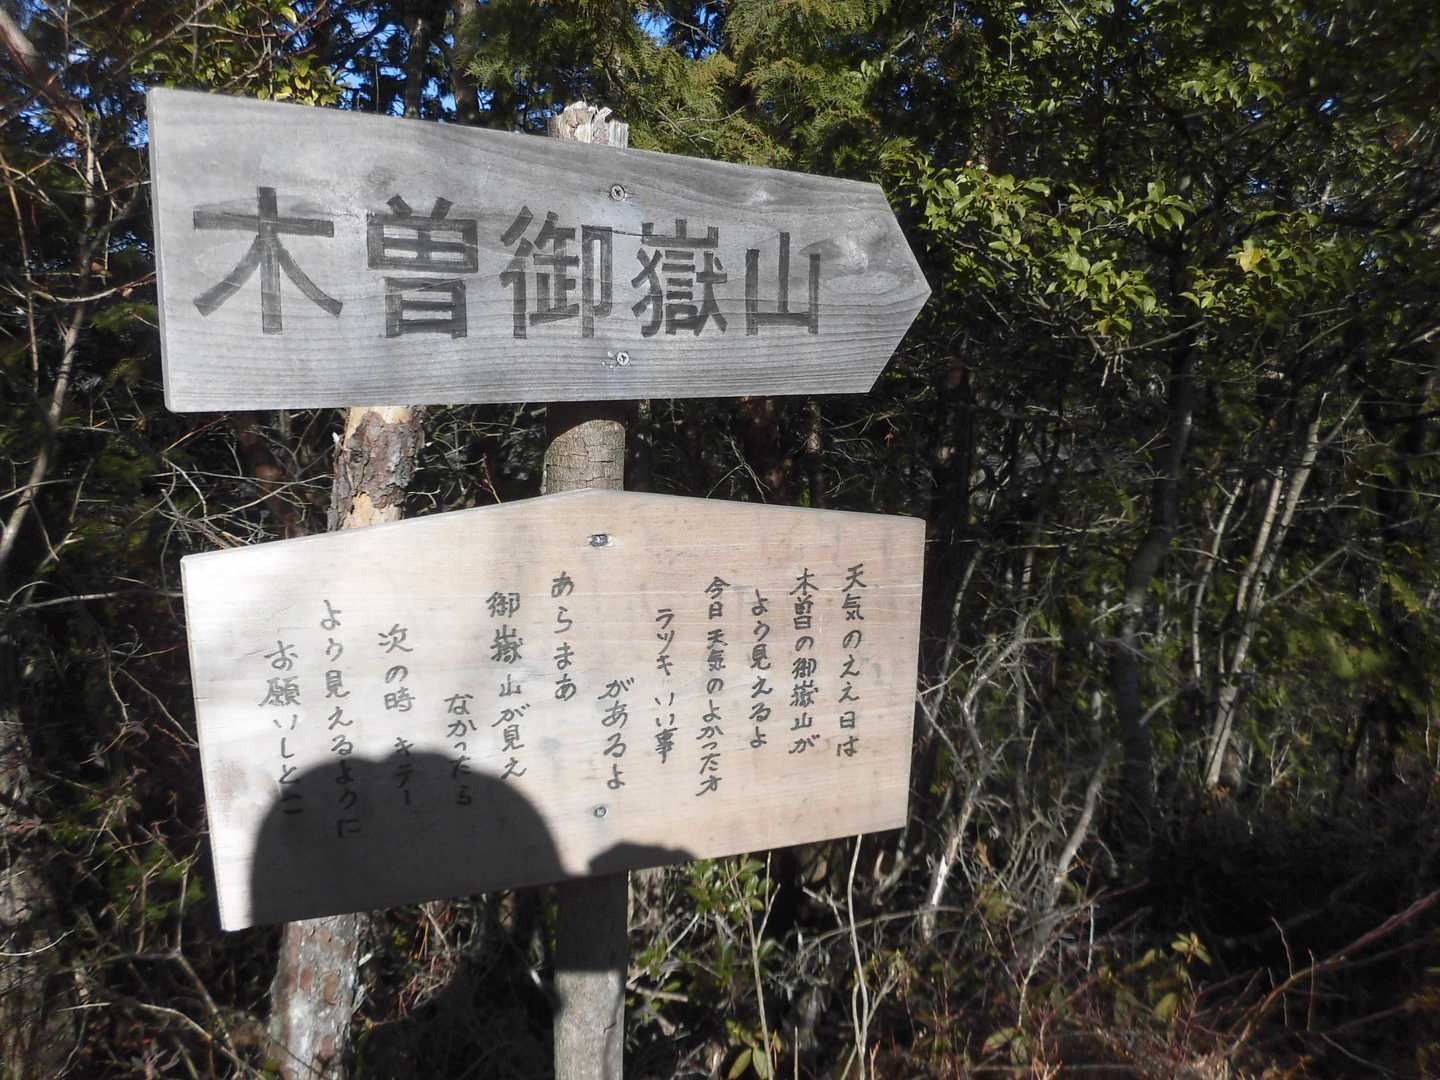 木曽御嶽山
天気のええ日は
木曽の御嶽山が
よう見えるよ
今日天気のよかった方
ラッキいい事
があるよ
あらまあ
御嶽山が見え
なかったら
次の時 キテー
よう見えるように
お願いしとこ